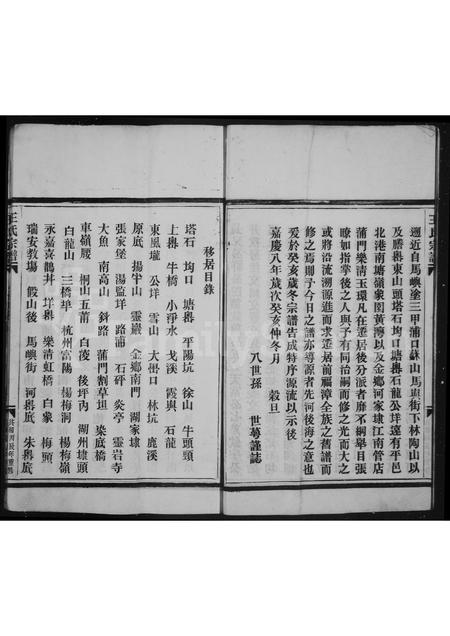 王氏宗譜
邇近自馬嶼塗三甲蒲口蘇山馬嶼街下林陶山以
及勝嶴東山頭塔石均口塘嶴石龍公垟遠有平邑
北港南塘嶺彖囝黃灣以及金鄉河家埭江南管店
蒲門樂清玉環凡在遷居後分派者靡不綱舉目張
瞭如指掌後之人與予有同治嗣而修之光而大之
或將沿流溯源進而求遷居前福漳全族之舊譜而
修之焉則予今日之譜亦導源者先河後海之意也
爰於癸亥歲冬宗譜告成特序源流以示後
嘉慶八年歲次癸亥仲冬月 穀旦
八世孫 世蕚謹誌
移居目錄
塔石 均口 塘嶴 平陽坑 徐山 牛頭頸
上嶴 牛橋 小淨水 戈溪 霞與 石龍
東風壠 公垟 雪山 大坦口 林坑 鹿溪
原底 揚半山 靈巖 金鄉南門 湖家埭
張家堡 湯監垟 路浦 石砰 炎亭 靈岩寺
大魚 南高山 斜路 蒲門割草垣 染底橋
車嶺腰 桐山五莆 白淩 後坪內 湖州埭頭
白龍山 三橋垾 杭州富陽 楊梅洞 楊梅嶺
永嘉喜鵲井 垟嶴 樂清虹橋 白象 梅頭
瑞安教塲 假山後 馬嶼街 河嶴底 朱嶴底
王氏宗譜